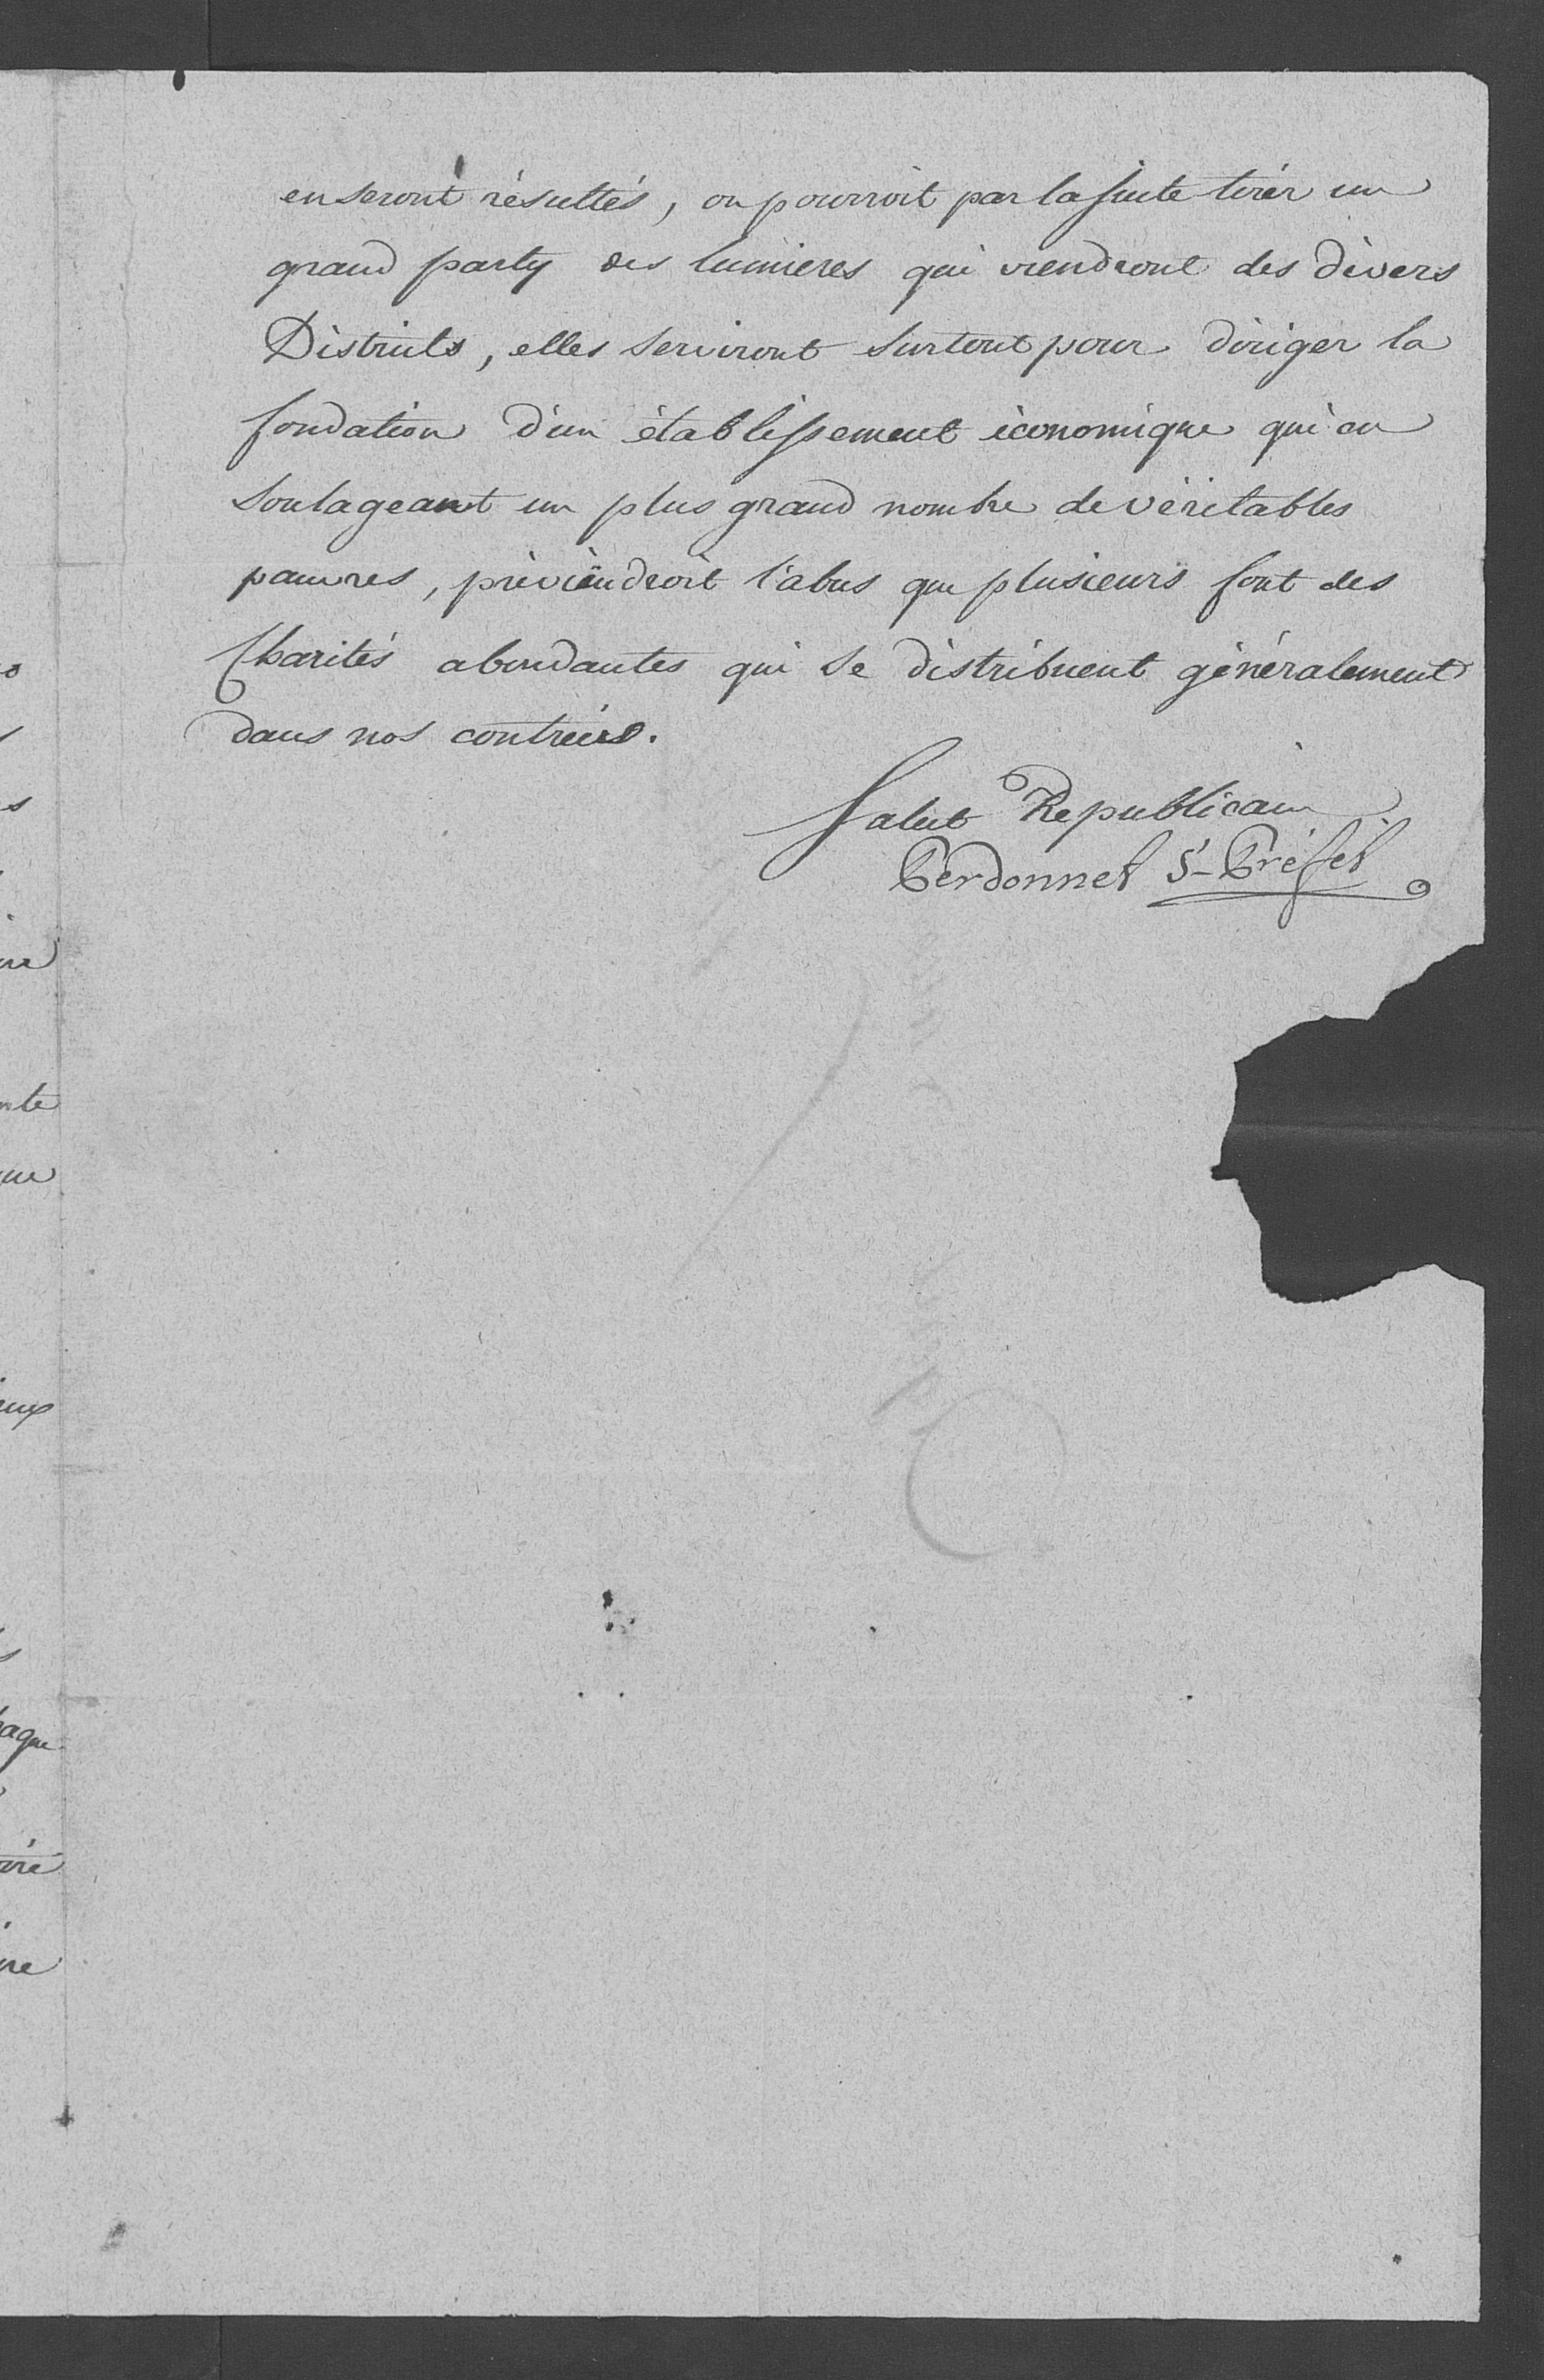 en seront résultés, on pourroit par la suite tirér un
grand party des lumieres qui viendront des divers
Districts, elles serviront surtout pour diriger la
fondation d'un établissement économique qui en
soulageant un plus grand nombre de véritables
pauvres, préviendroit l'abus que plusieurs font des
Charités abondantes qui se distribuent généralement
dans nos contrées.
Salut Republicain
Perdonnet S-Préfet